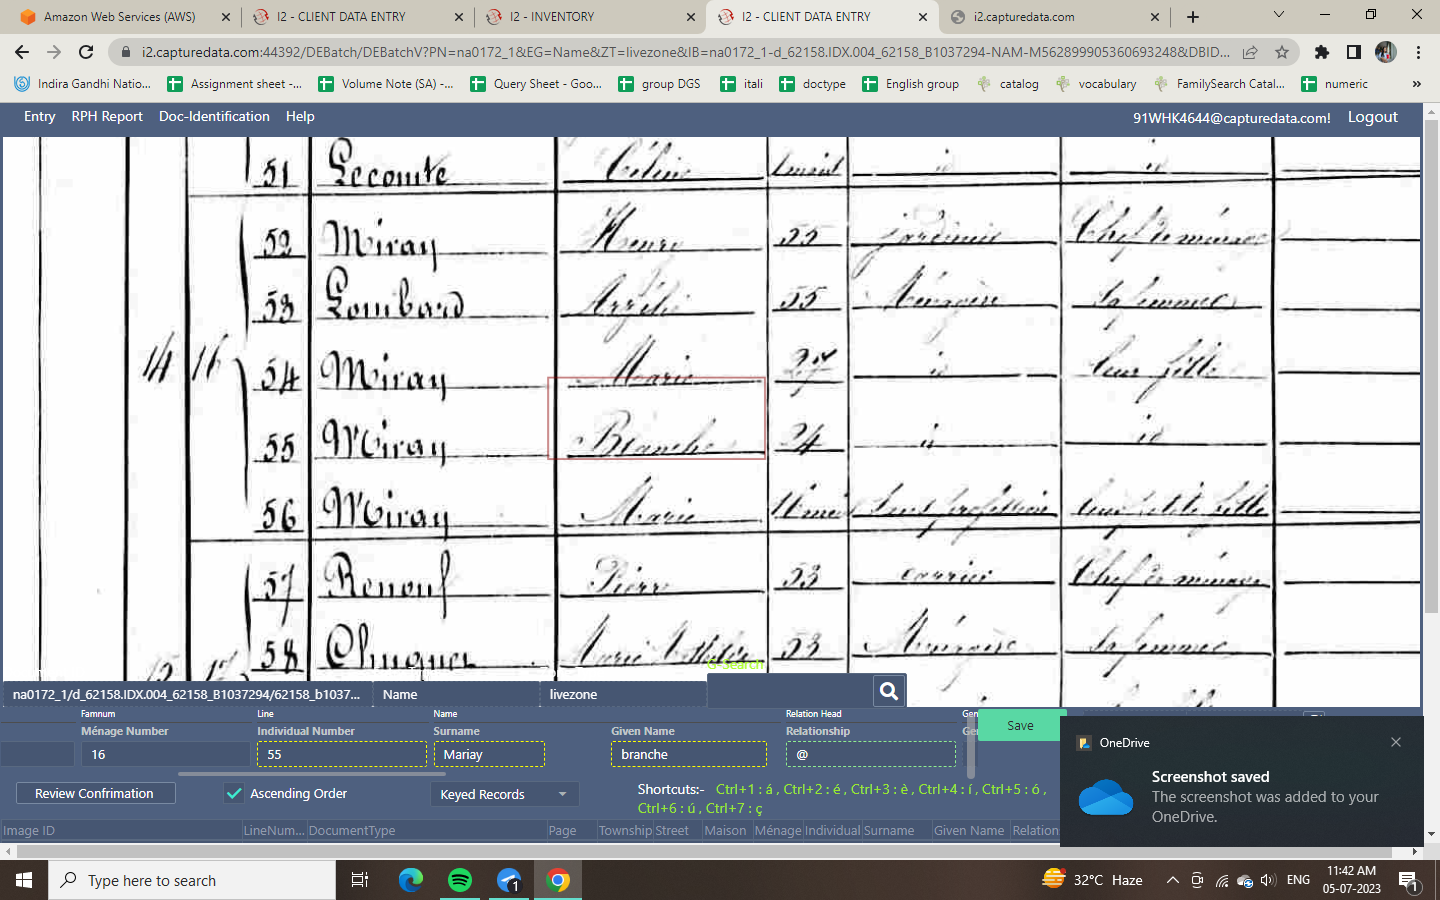 Amazon Web Services (AWS)
I2 - CLIENT DATA ENTRY
I2 - INVENTORY
I2 - CLIENT DATA ENTRY
i2.capturedata.com
i2.capturedata.com:44392/DEBatch/DEBatchV?PN=na0172_1&EG=Name&ZT=livezone&IB=na0172_1-d_62158.IDX.004_62158_B1037294-NAM-M5628999053606932​48&DBID...
Indira Gandhi Natio... Assignment sheet -... Volume Note (SA) -... Query Sheet - Goo... group DGS itali doctype English group catalog vocabulary FamilySearch Catal... numeric »
Entry RPH Report Doc-Identification Help 91WHK4644@capturedata.com! Logout
51 Lecomte Céline id id
52 Miray Henri 55 jardinier Chef de ménage
53 Lombard 55 Ménagère sa femme
14 16 54 Miray Marie 27 id leur fille
55 Miray Blanche 24 id id
56 Miray Marie 16 mois Sans profession leur petite fille
57 Renouf Pierre 53 carrier Chef de ménage
58 53 Ménagère sa femme
G-Search
na0172_1/d_62158.IDX.004_62158_B1037294/62158_b1037... Name livezone
Famnum Line Name Relation Head Gen
Ménage Number Individual Number Surname Given Name Relationship Ge
16 55 Mariay branche @
Save
Review Confrimation Ascending Order Keyed Records
Shortcuts:- Ctrl+1 : á , Ctrl+2 : é , Ctrl+3 : è , Ctrl+4 : í , Ctrl+5 : ó ,
Ctrl+6 : ú , Ctrl+7 : ç
Image ID LineNum... DocumentType Page Township Street Maison Ménage Individual Surname Given Name Relation
OneDrive
Screenshot saved
The screenshot was added to your
OneDrive.
Type here to search
1
32°C Haze
ENG
11:42 AM
05-07-2023
1